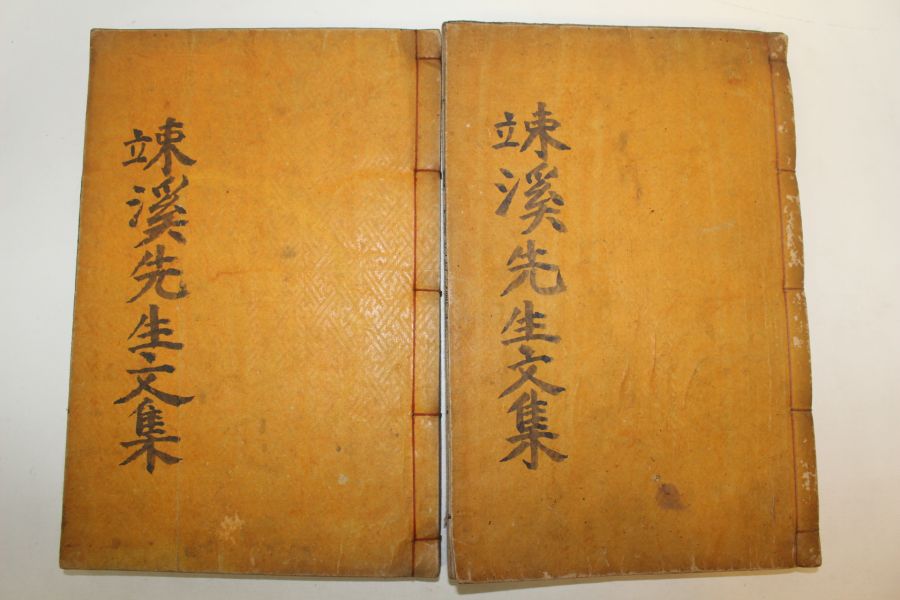 竦溪先生文集
竦溪先生文集